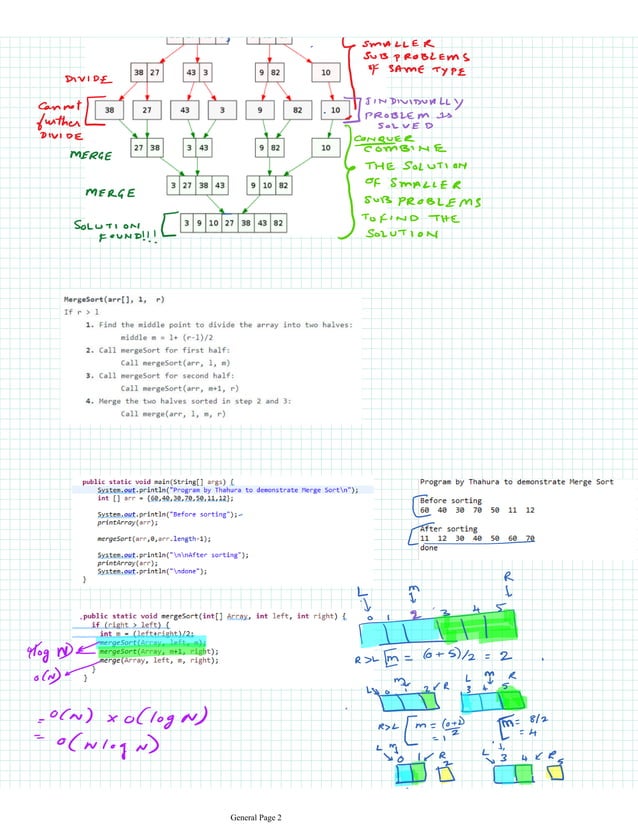 SMALLER
SUB PROBLEMS
OF SAME TYPE
DIVIDE
38 27
43 3
9 82
10
Cannot
further
DIVIDE
38
27
43
3
9
82
10
INDIVIDUALLY
PROBLEM IS
SOLVED
MERGE
27 38
3 43
9 82
10
CONQUER
COMBINE
THE SOLUTION
OF SMALLER
SUB PROBLEMS
TO FIND THE
SOLUTION
MERGE
3 27 38 43
9 10 82
SOLUTION
FOUND!!!
3 9 10 27 38 43 82
MergeSort(arr[], l, r)
If r > l
1. Find the middle point to divide the array into two halves:
middle m = l+ (r-l)/2
2. Call mergeSort for first half:
Call mergeSort(arr, l, m)
3. Call mergeSort for second half:
Call mergeSort(arr, m+1, r)
4. Merge the two halves sorted in step 2 and 3:
Call merge(arr, l, m, r)
public static void main(String[] args) {
System.out.println("Program by Thahura to demonstrate Merge Sort\n");
int [] arr = {60,40,30,70,50,11,12};
System.out.println("Before sorting");
printArray(arr);
mergeSort(arr,0,arr.length-1);
System.out.println("\n\nAfter sorting");
printArray(arr);
System.out.println("\ndone");
}
Program by Thahura to demonstrate Merge Sort
Before sorting
60 40 30 70 50 11 12
After sorting
11 12 30 40 50 60 70
done
public static void mergeSort(int[] Array, int left, int right) {
if (right > left) {
int m = (left+right)/2;
mergeSort(Array, left, m);
mergeSort(Array, m+1, right);
merge(Array, left, m, right);
}
}
log N
O(N)
= O(N) x O(log N)
= O(N log N)
L m R
0 1 2 3 4 5
R>L m = (0+5)/2 = 2
L m R
0 1 2
L m R
3 4 5
R>L m = (0+2)/2
= 1
m = 8/2
= 4
L m R
0 1 2
L R
3 4 5
General Page 2